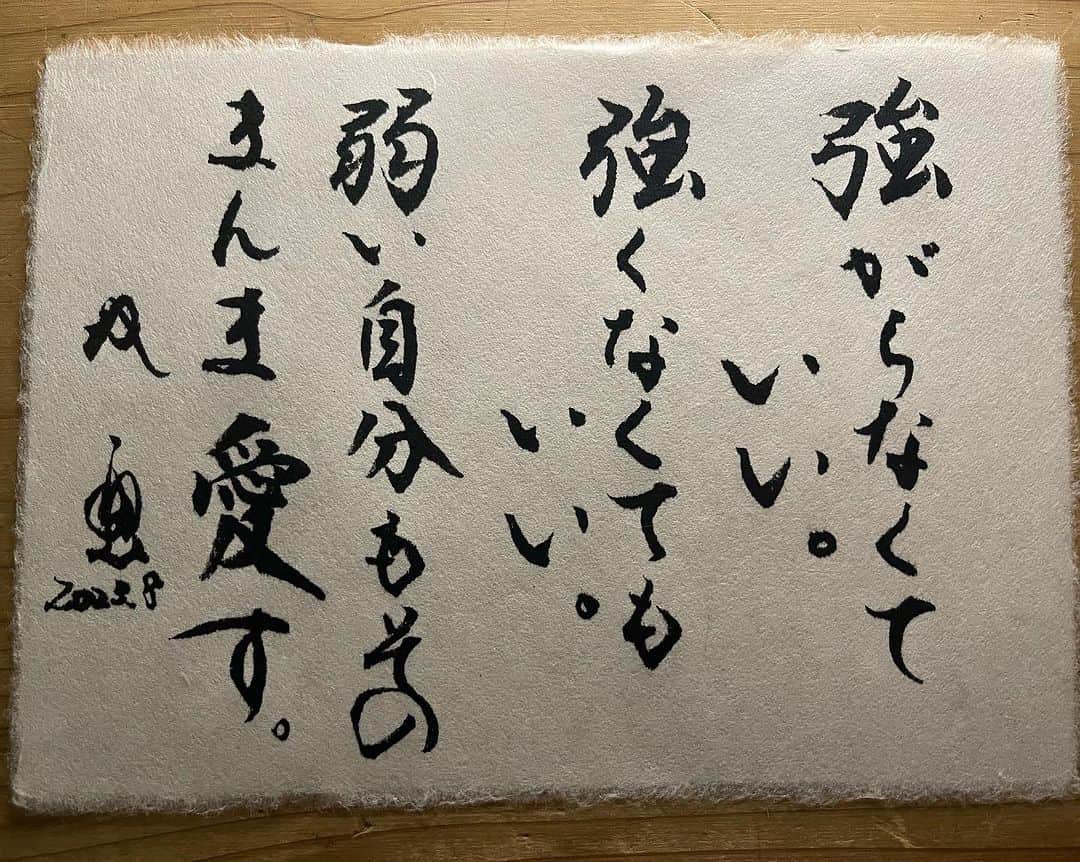 強がらなくて
いい。
強くなくても
いい。
弱い自分もその
まんま愛す。